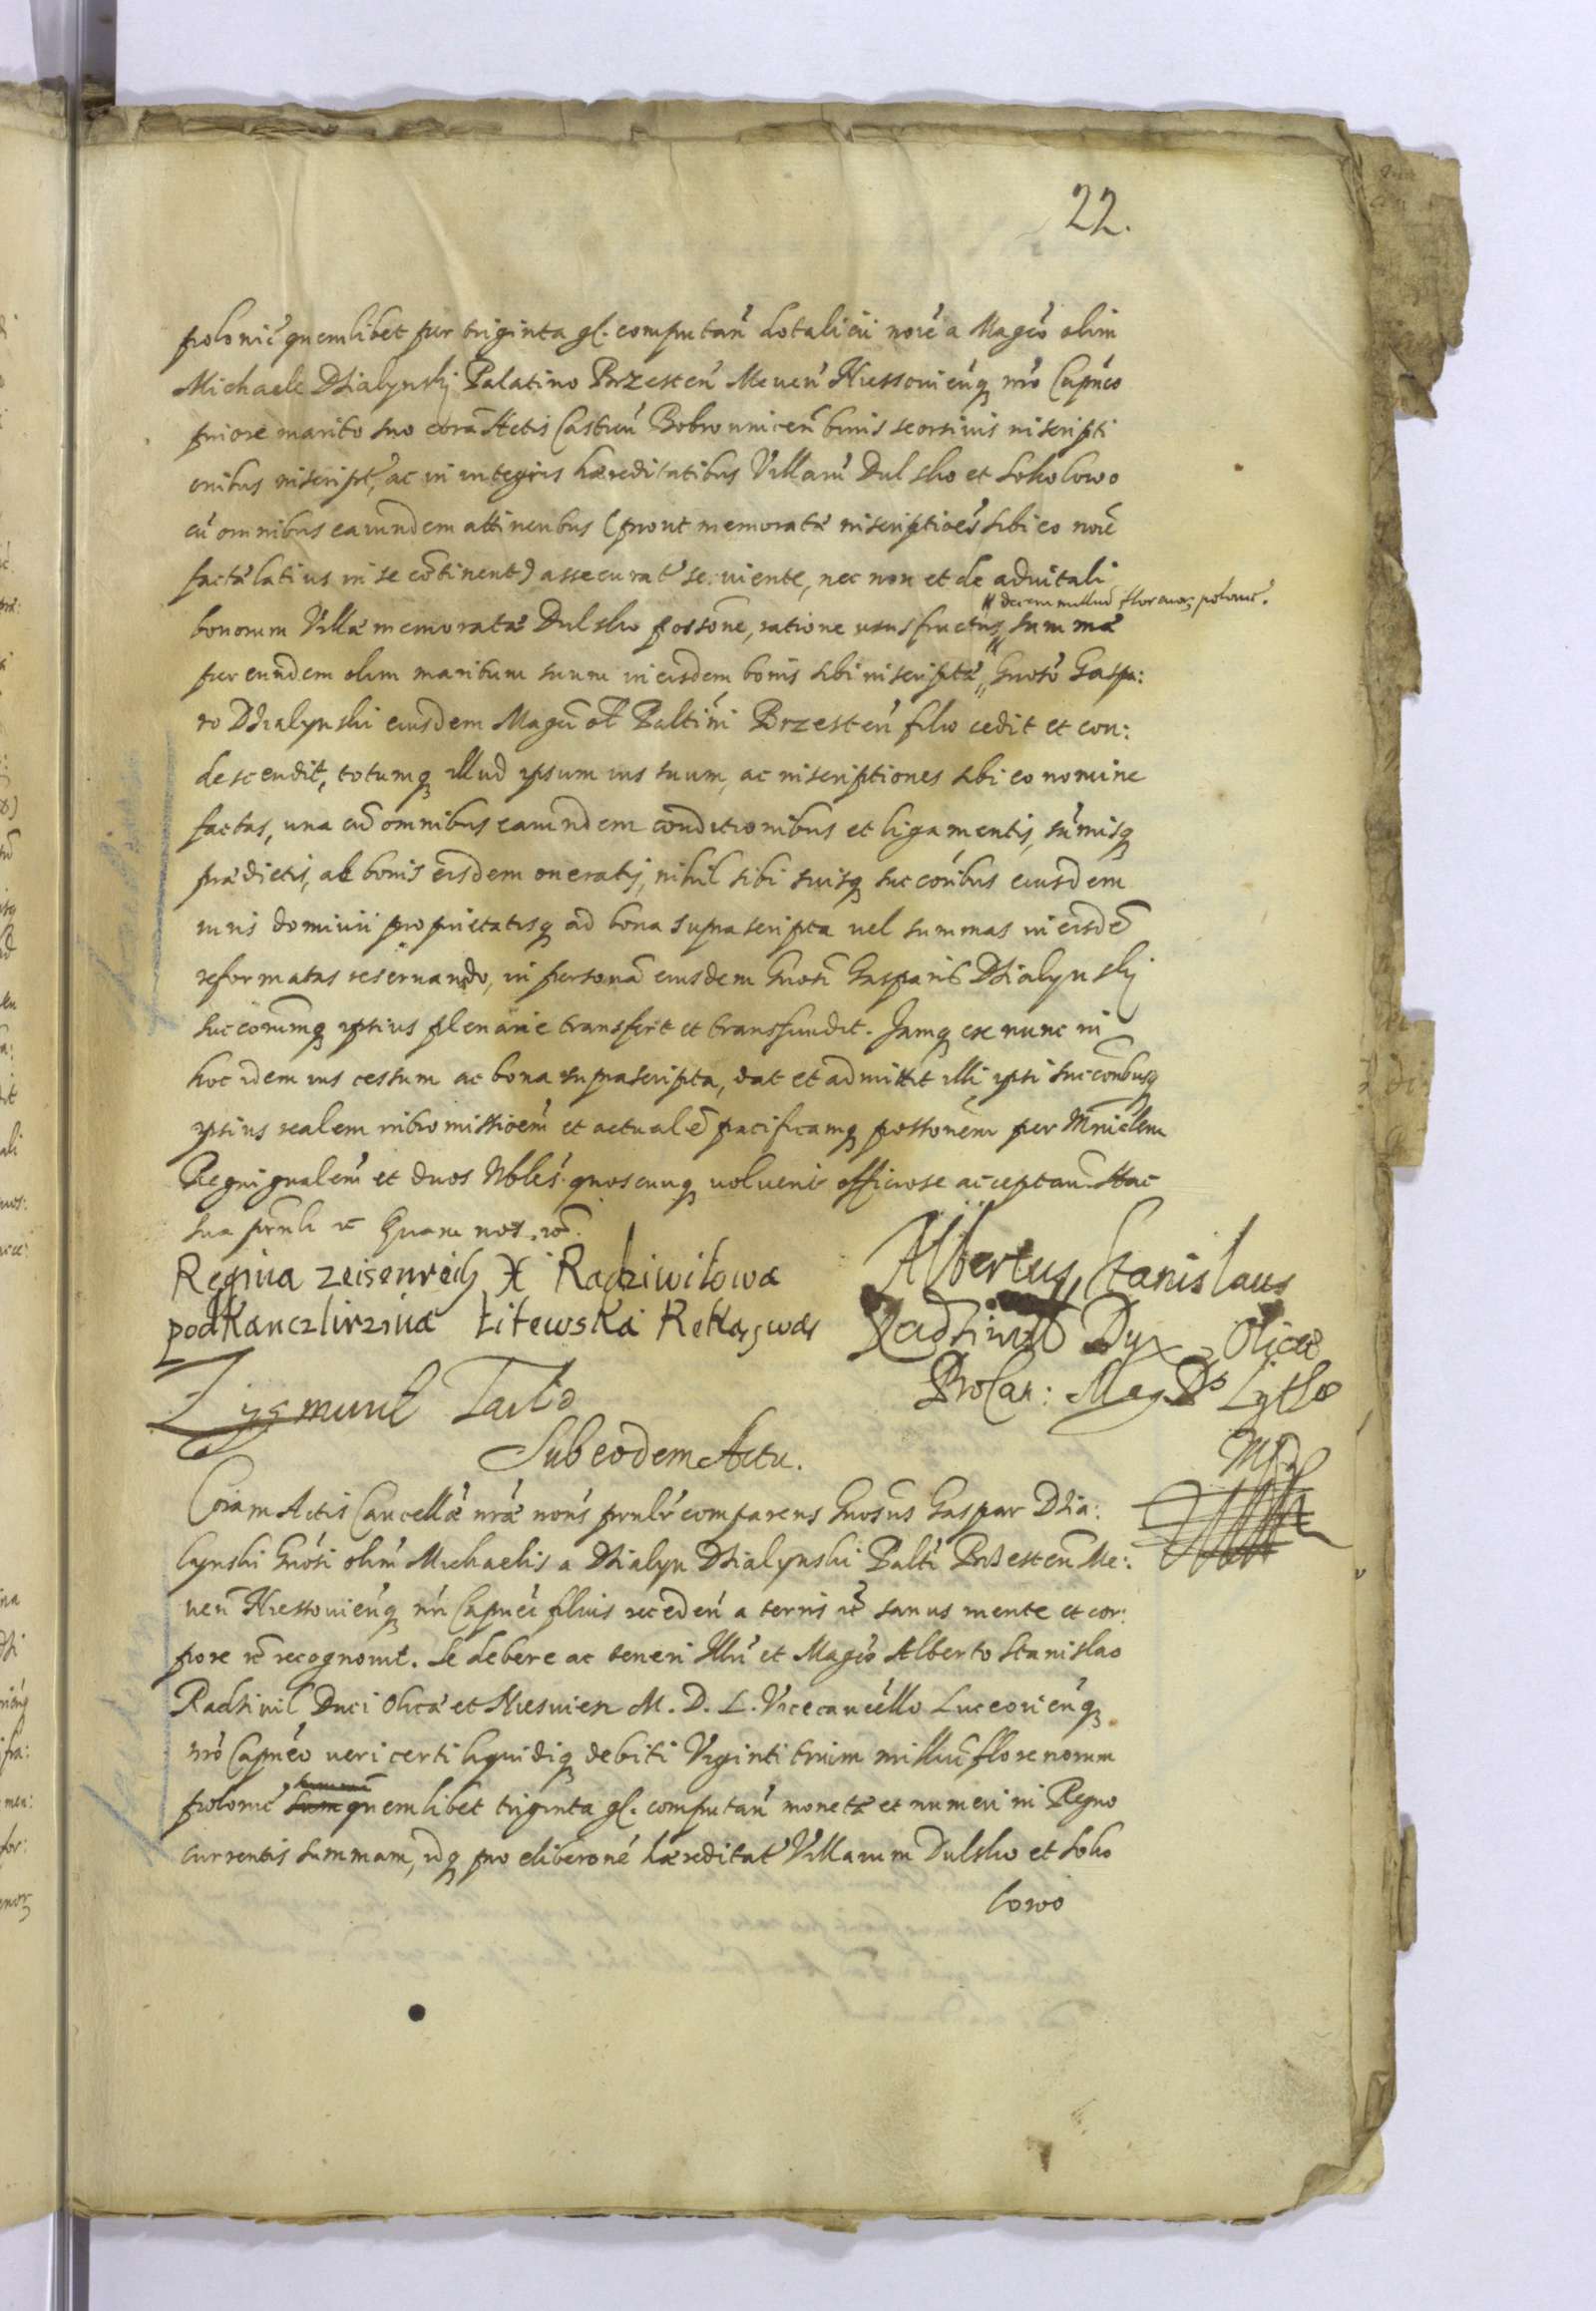 22.
polonic̃ quemlibet per triginta gl. computan̄ dotalicii noīe a Magco olim
Michaele Dzialynskj Palatino Brzesten̄ Meuen̄ Kiessouien̄q nr̄o Capneo
priore marito suo corā Actis Castren̄ Bobrounicen̄ binis seorsiuis inscripti
onibus inscript, ac in integris hæreditatibus Villarū Dulsko et Sokolowo
cū omnibus earundem attinentibus (prout memoratæ inscriptioēs sibi eo noīe
factæ latius in se cōtinent) assecurat seruiente, nec non et de aduitali
" decem milliū florenor polonic.
bonorum Villæ memoratæ Dulsko possone, ratione ususfructus " summæ
per eundem olim maritum suum in eisdem bonis sibi inscriptæ " Gnoso Gaspa:
ro Dzialynski eiusdem Magci ol Paltini Brzesten̄ filio cedit et con:
descendit, totumq illud ipsum ius suum, ac inscriptiones sibi eo nomine
factas, una cū omnibus earundem conditionibus et ligamentis, sūmisq
prædictis, ab bonis eisdem oneratis, nihil sibi suisq succoribus eiusdem
iuris dominii proprietatisq ad bona suprascripta uel summas in eisdē
reformatas reseruando, in personā eiusdem Gnosi Gasparis Dzialynskj
succorumq ipsius plenarie transfert et transfundit. Jamq ex nunc in
hoc idem ius cessum ac bona suprascripta, dat et admittit illi ipsi succoribusq
ipsius realem intromissioem et actualē pacificamq possonem per Mniālem
Regni gnalem et duos Nbles quoscunq uoluerit officiose acceptan. Hac
sua prnli rc̄ Quam not. rc̄.
Regina zeisenreich X Radziwilowa
podkanczlirzina Łitewska Rekąswą
Albertus Stanislaus
Radziwil Dux Olicæ
ProCan: Mag. Ds Lythæ
Zygmunt Tarlo
Mp
Sub eodem Actu.
Coram Actis Cancellæ nræ nōris prnlr comparens Gnosus Gaspar Dzia:
lynski Gnosi olim Michaelis a Dzialyn Dzialynski Palti Brzesten̄ Me:
uen̄ Kiessouien̄q nri Capnei filius receden a terris rc̄ sanus mente et cor:
pore rc̄ recognouit. Se debere ac teneri Illri et Magco Alberto Stanislao
Radziuil Duci Olicæ et Niesuien M. D. L. Vicecancello Luceorien̄q
nro Capneo ueri certi liquidiq debiti Viginti trium milliū florenorum
polonic quemlibet triginta gl. computan̄ monetæ et numeri in Regno
currentis summam, idq pro eliberone hæreditat Villarum Dulsko et Soko
lowo